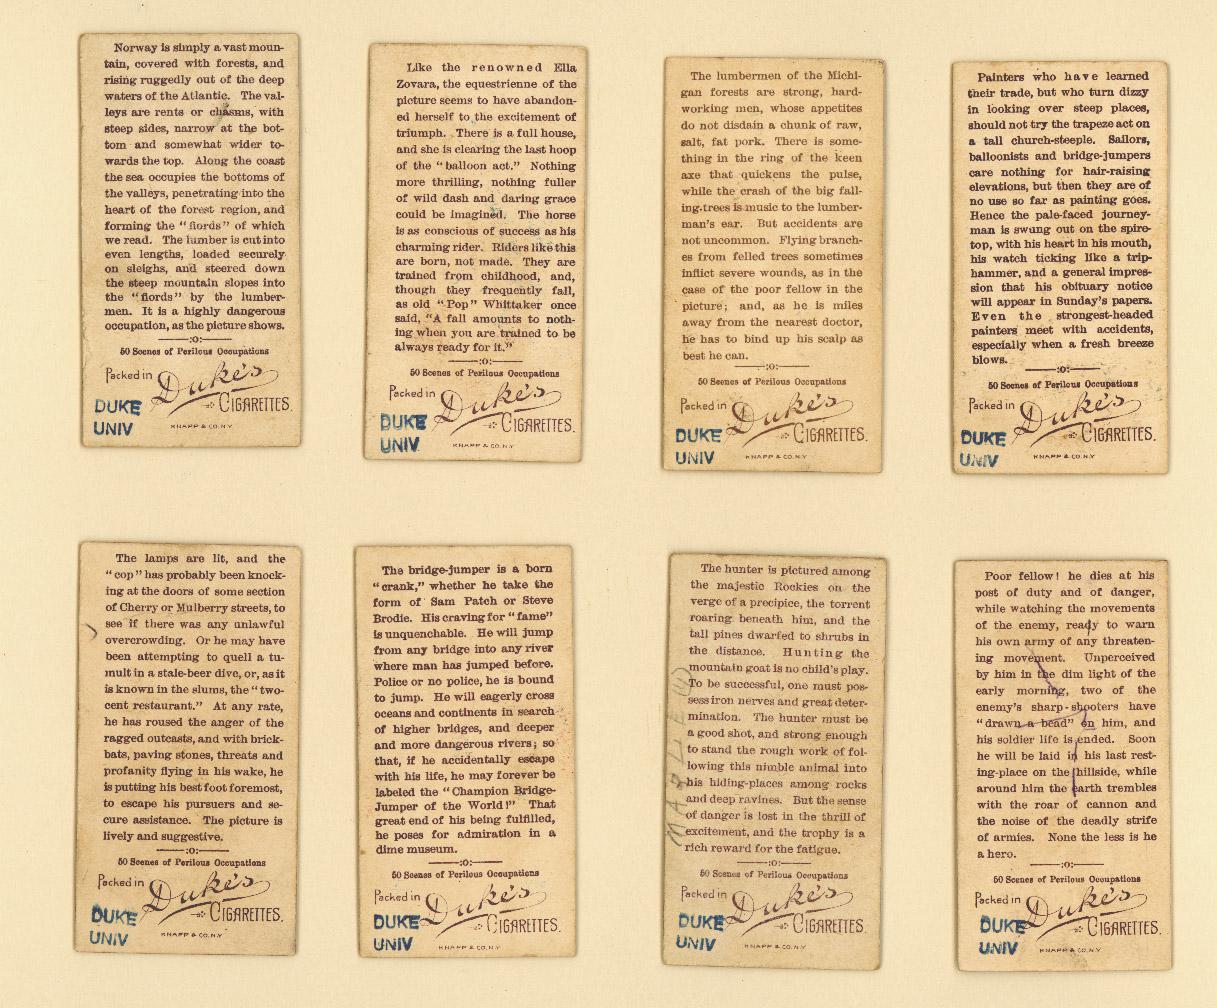 Norway is simply a vast moun-
tain, covered with forests, and
rising ruggedly out of the deep
waters of the Atlantic. The val-
leys are rents or chasms, with
steep sides, narrow at the bot-
tom and somewhat wider to-
wards the top. Along the coast
the sea occupies the bottoms of
the valleys, penetrating into the
heart of the forest region, and
forming the "fiords" of which
we read. The lumber is cut into
even lengths, loaded securely
on sleighs, and steered down
the steep mountain slopes into
the "fiords" by the lumber-
men. It is a highly dangerous
occupation, as the picture shows.
:o:
50 Scenes of Perilous Occupations
Packed in Duke's
CIGARETTES.
DUKE
UNIV
KNAPP & CO. N.Y.
Like the renowned Ella
Zovara, the equestrienne of the
picture seems to have abandon-
ed herself to the excitement of
triumph. There is a full house,
and she is clearing the last hoop
of the "balloon act." Nothing
more thrilling, nothing fuller
of wild dash and daring grace
could be imagined. The horse
is as conscious of success as his
charming rider. Riders like this
are born, not made. They are
trained from childhood, and,
though they frequently fall,
as old "Pop" Whittaker once
said, "A fall amounts to noth-
ing when you are trained to be
always ready for it."
:o:
50 Scenes of Perilous Occupations
Packed in Duke's
CIGARETTES.
DUKE
UNIV
KNAPP & CO. N.Y.
The lumbermen of the Michi-
gan forests are strong, hard-
working men, whose appetites
do not disdain a chunk of raw,
salt, fat pork. There is some-
thing in the ring of the keen
axe that quickens the pulse,
while the crash of the big fall-
ing trees is music to the lumber-
man's ear. But accidents are
not uncommon. Flying branch-
es from felled trees sometimes
inflict severe wounds, as in the
case of the poor fellow in the
picture; and, as he is miles
away from the nearest doctor,
he has to bind up his scalp as
best he can.
:o:
50 Scenes of Perilous Occupations
Packed in Duke's
CIGARETTES.
DUKE
UNIV
KNAPP & CO. N.Y
Painters who have learned
their trade, but who turn dizzy
in looking over steep places,
should not try the trapeze act on
a tall church-steeple. Sailors,
balloonists and bridge-jumpers
care nothing for hair-raising
elevations, but then they are of
no use so far as painting goes.
Hence the pale-faced journey-
man is swung out on the spire-
top, with his heart in his mouth,
his watch ticking like a trip-
hammer, and a general impres-
sion that his obituary notice
will appear in Sunday's papers.
Even the strongest-headed
painters meet with accidents,
especially when a fresh breeze
blows.
:o:
50 Scenes of Perilous Occupations
Packed in Duke's
CIGARETTES.
DUKE
UNIV
KNAPP & CO. N.Y
The lamps are lit, and the
"cop" has probably been knock-
ing at the doors of some section
of Cherry or Mulberry streets, to
see if there was any unlawful
overcrowding. Or he may have
been attempting to quell a tu-
mult in a stale-beer dive, or, as it
is known in the slums, the "two-
cent restaurant." At any rate,
he has roused the anger of the
ragged outcasts, and with brick-
bats, paving stones, threats and
profanity flying in his wake, he
is putting his best foot foremost,
to escape his pursuers and se-
cure assistance. The picture is
lively and suggestive.
:o:
50 Scenes of Perilous Occupations
Packed in Duke's
CIGARETTES.
DUKE
UNIV
KNAPP & CO. N.Y
The bridge-jumper is a born
"crank," whether he take the
form of Sam Patch or Steve
Brodie. His craving for "fame"
is unquenchable. He will jump
from any bridge into any river
where man has jumped before.
Police or no police, he is bound
to jump. He will eagerly cross
oceans and continents in search
of higher bridges, and deeper
and more dangerous rivers; so
that, if he accidentally escape
with his life, he may forever be
labeled the "Champion Bridge-
Jumper of the World!" That
great end of his being fulfilled,
he poses for admiration in a
dime museum.
:o:
50 Scenes of Perilous Occupations
Packed in Duke's
CIGARETTES.
DUKE
UNIV
KNAPP & CO. N.Y
The hunter is pictured among
the majestic Rockies on the
verge of a precipice, the torrent
roaring beneath him, and the
tall pines dwarfed to shrubs in
the distance. Hunting the
mountain goat is no child's play.
To be successful, one must pos-
sess iron nerves and great deter-
mination. The hunter must be
a good shot, and strong enough
to stand the rough work of fol-
lowing this nimble animal into
his hiding-places among rocks
and deep ravines. But the sense
of danger is lost in the thrill of
excitement, and the trophy is a
rich reward for the fatigue.
:o:
50 Scenes of Perilous Occupations
Packed in Duke's
CIGARETTES.
DUKE
UNIV
KNAPP & CO. N.Y
Poor fellow! he dies at his
post of duty and of danger,
while watching the movements
of the enemy, ready to warn
his own army of any threaten-
ing movement. Unperceived
by him in the dim light of the
early morning, two of the
enemy's sharp-shooters have
"drawn a bead" on him, and
his soldier life is ended. Soon
he will be laid in his last rest-
ing-place on the hillside, while
around him the earth trembles
with the roar of cannon and
the noise of the deadly strife
of armies. None the less is he
a hero.
:o:
50 Scenes of Perilous Occupations
Packed in Duke's
CIGARETTES.
DUKE
UNIV
KNAPP & CO. N.Y